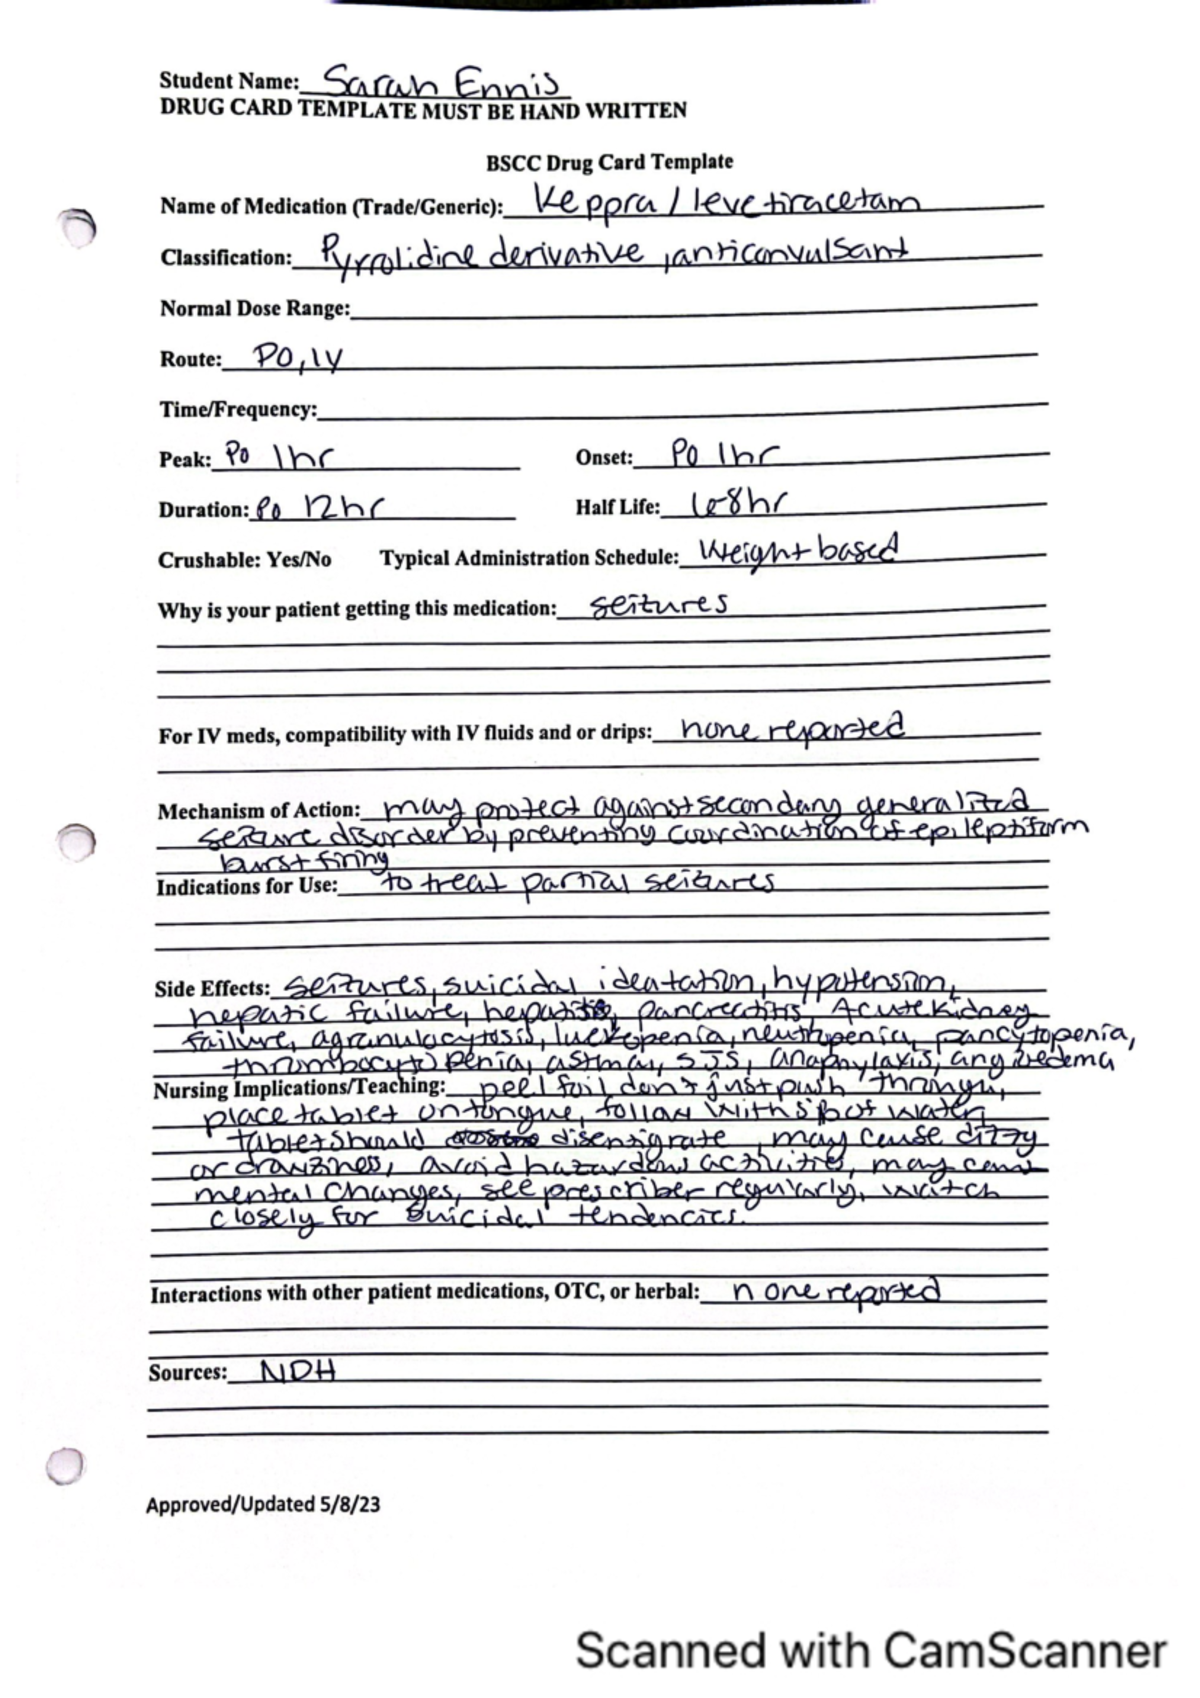 Student Name: Sarah Ennis
DRUG CARD TEMPLATE MUST BE HAND WRITTEN
BSCC Drug Card Template
Name of Medication (Trade/Generic): Keppra / levetiracetam
Classification: Pyrrolidine derivative, anticonvulsant
Normal Dose Range:
Route: PO, IV
Time/Frequency:
Peak: PO 1hr Onset: PO 1hr
Duration: PO 12hr Half Life: 6-8hr
Crushable: Yes/No Typical Administration Schedule: Weight based
Why is your patient getting this medication: seizures
For IV meds, compatibility with IV fluids and or drips: none reported
Mechanism of Action: may protect against secondary generalized
seizure disorder by preventing coordination of epileptiform
burst firing
Indications for Use: to treat partial seizures
Side Effects: seizures, suicidal ideatation, hypotension,
hepatic failure, hepatitis, pancreatitis, Acute kidney
failure, agranulocytosis, luekopenia, neuthpenia, pancytopenia,
thrombocytopenia, astma, SJS, anaphylaxis, angioedema
Nursing Implications/Teaching: peel foil don't just push through,
place tablet on tongue, follow with sip of water,
tablet should disentigrate, may cause dizzy
or drowziness, avoid hazardous activities, may cause
mental changes, see prescriber regularly, watch
closely for suicidal tendencies.
Interactions with other patient medications, OTC, or herbal: none reported
Sources: NDH
Approved/Updated 5/8/23
Scanned with CamScanner